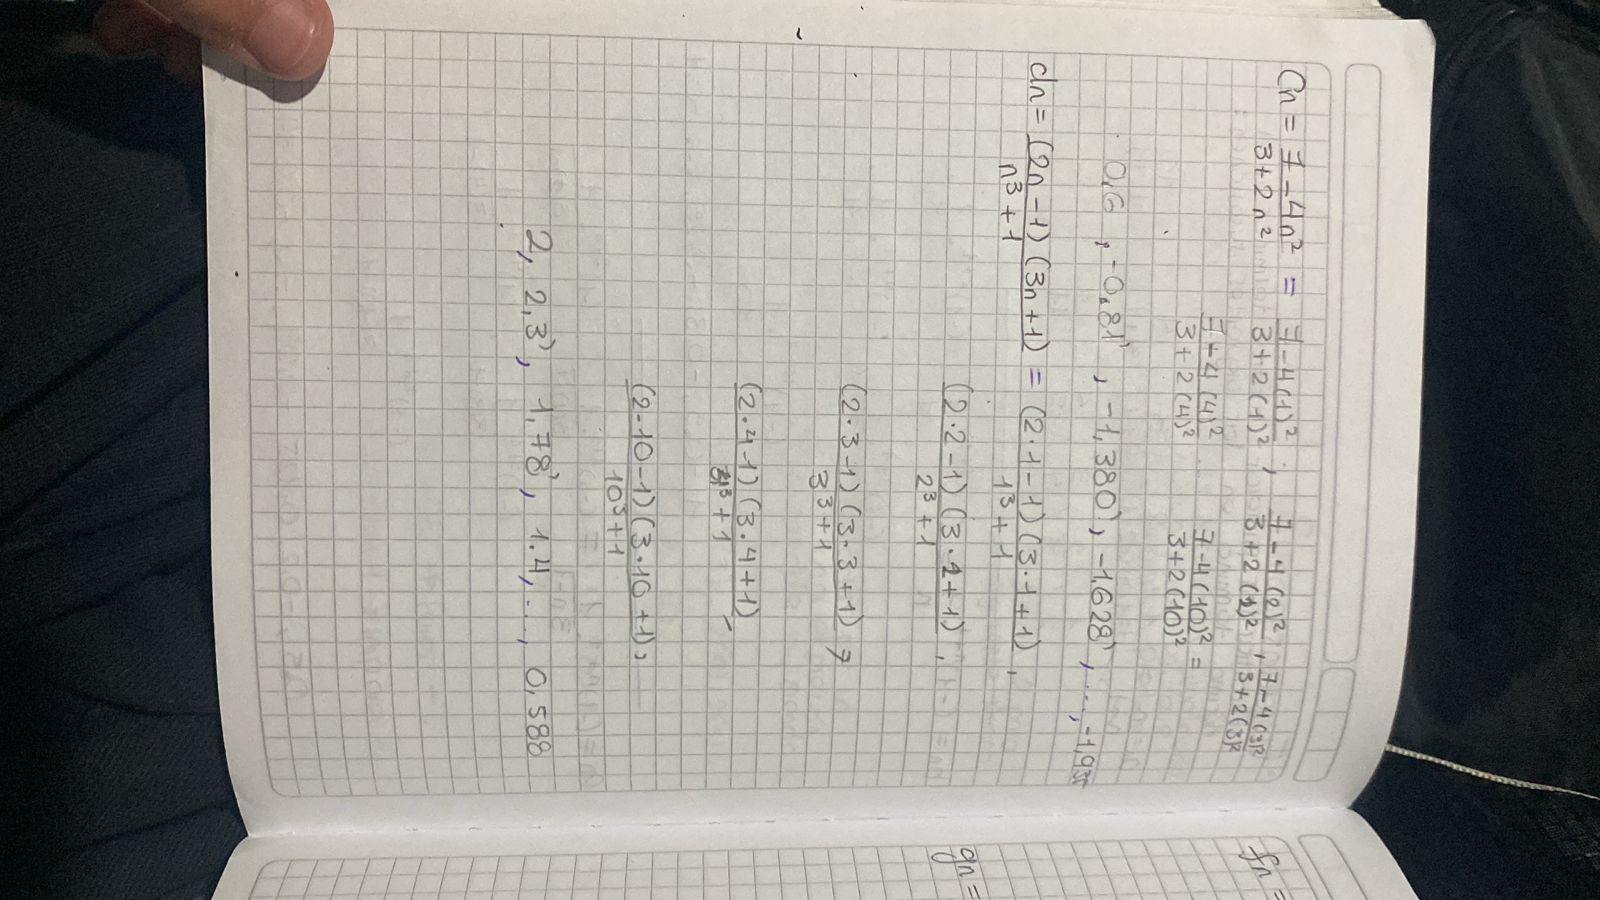 Cn = 7-4n² / 3+2n² = 7-4(1)² / 3+2(1)² ; 7-4(2)² / 3+2(2)² , 7-4(3)² / 3+2(3)²
7-4(4)² / 3+2(4)²   7-4(10)² / 3+2(10)² =
0,6 , -0,81 , -1,380 , -1,628 , ..., -1,935
dn = (2n-1)(3n+1) / n³+1 = (2·1-1)(3·1+1) / 1³+1 ,
(2·2-1)(3·2+1) / 2³+1 ,
(2·3-1)(3·3+1) / 3³+1 ,
(2·4-1)(3·4+1) / 4³+1 ,
(2-10-1)(3·10+1) / 10³+1 ,
2, 2,3 , 1,78 , 1.4, ..., 0,588
fn =
gn =